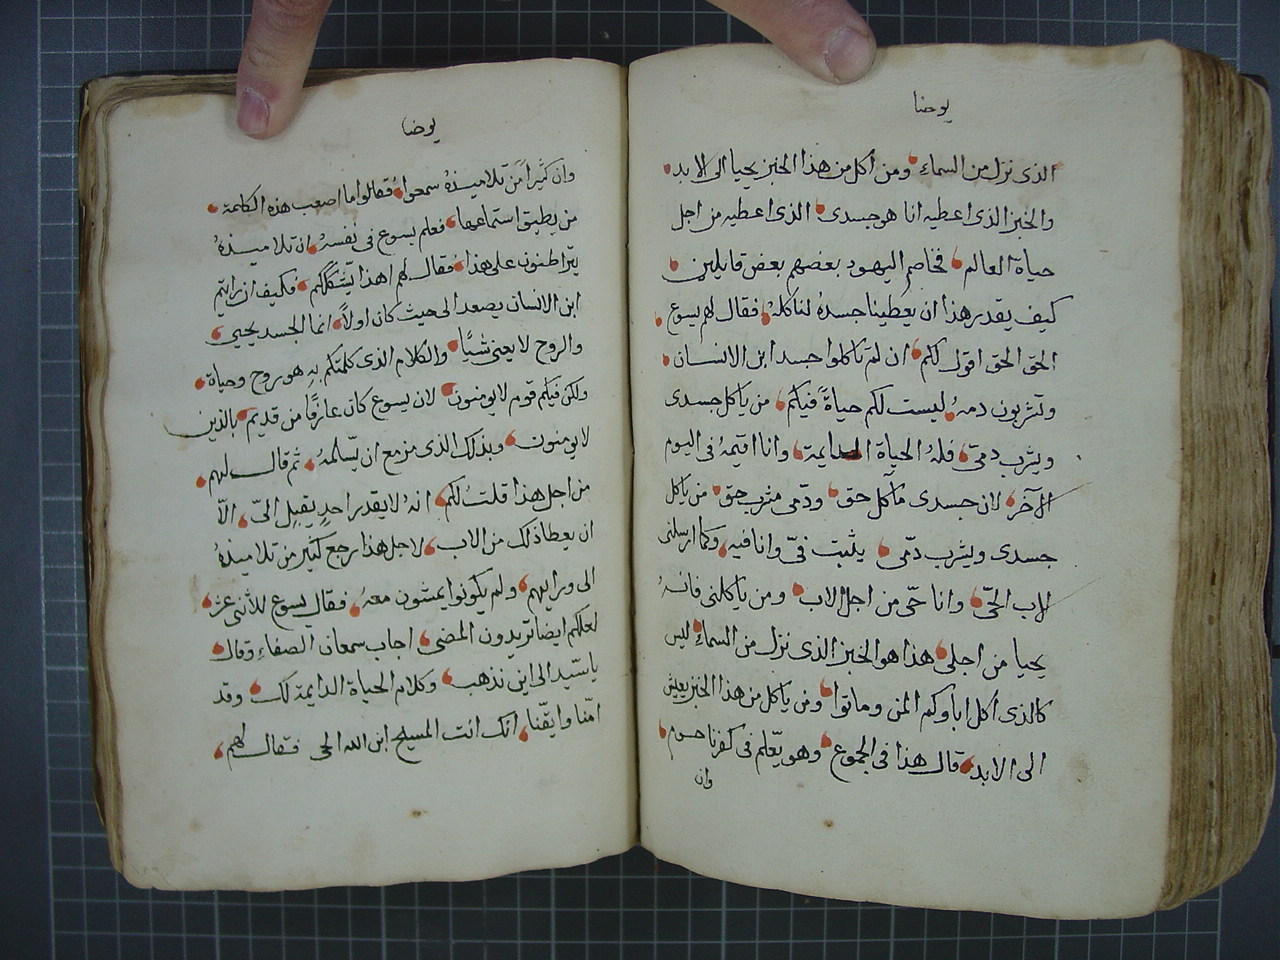 يوحنا
الذى نزل من السماءِ ومن اكل من هذا الخبز يحيا الى الابد
والخبز الذى اعطيه انا هو جسدى الذى اعطيه من اجل
حياة العالم فخاصم اليهود بعضهم بعض قايلين
كيف يقدر هذا ان يعطينا جسدهُ لناكلهُ فقال لهم يسوع
الحق الحق اقول لكم ان لم تاكلوا جسد ابن الانسان
وتشربون دمهُ ليست لكم حياةً فيكم من ياكل جسدى
ويشرب دمىّ فلهُ الحياة الدايمة وانا اقيمهُ فى اليوم
الآخر لان جسدى مآكل حق ودمّى مشرب حق من ياكل
جسدى ويشرب دمّى يثبت فىّ وانا فيه وكما ارسلنى
الاب الحىّ وانا حىّ من اجل الاب ومن ياكلنى فانهُ
يحيا من اجلى هذا هو الخبز الذى نزل من السماءِ ليس
كالذى اكل اباوكم المن وماتوا ومن ياكل من هذا الخبز يعيش
الى الابد قال هذا فى الجموع وهو يعّلم فى كفرناحوم
وان
يوحنا
وان كثيراً من تلاميذهُ سمعوا فقالوا ما اصعب هذه الكلمة
من يطيق استماعها فعلم يسوع فى نفسهُ ان تلاميذهُ
يتراطنون على هذا فقال لهم اهذا يشككم فكيف ان رايتم
ابن الانسان يصعد الى حيث كان اولاً انما الجسد يحيى
والروح لا يعنى شيًا والكلام الذى كلمتكم بهِ هو روح وحياة
ولكن فيكم قوم لا يومنون لان يسوع كان عارفًا من قديم بالذين
لا يومنون وبذلك الذى مزمع ان يسّلمهُ ثم قال لهم
من اجل هذا قلت لكم انهُ لا يقدر احدٍ يقبل الىّ الاّ
ان يعطا ذلك من الاب لاجل هذا رجع كثير من تلاميذهُ
الى ورايهم ولم يكونوا يمشون معهُ فقال يسوع للاثنى عشر
لعلكم ايضا تريدون المضى اجاب سمعان الصفاءِ وقال
ياسّيد الى اين نذهب وكلام الحياة الدايمة لك وقد
امّنا وايقّنا انك انت المسيح ابن الله الحى فقال لهم